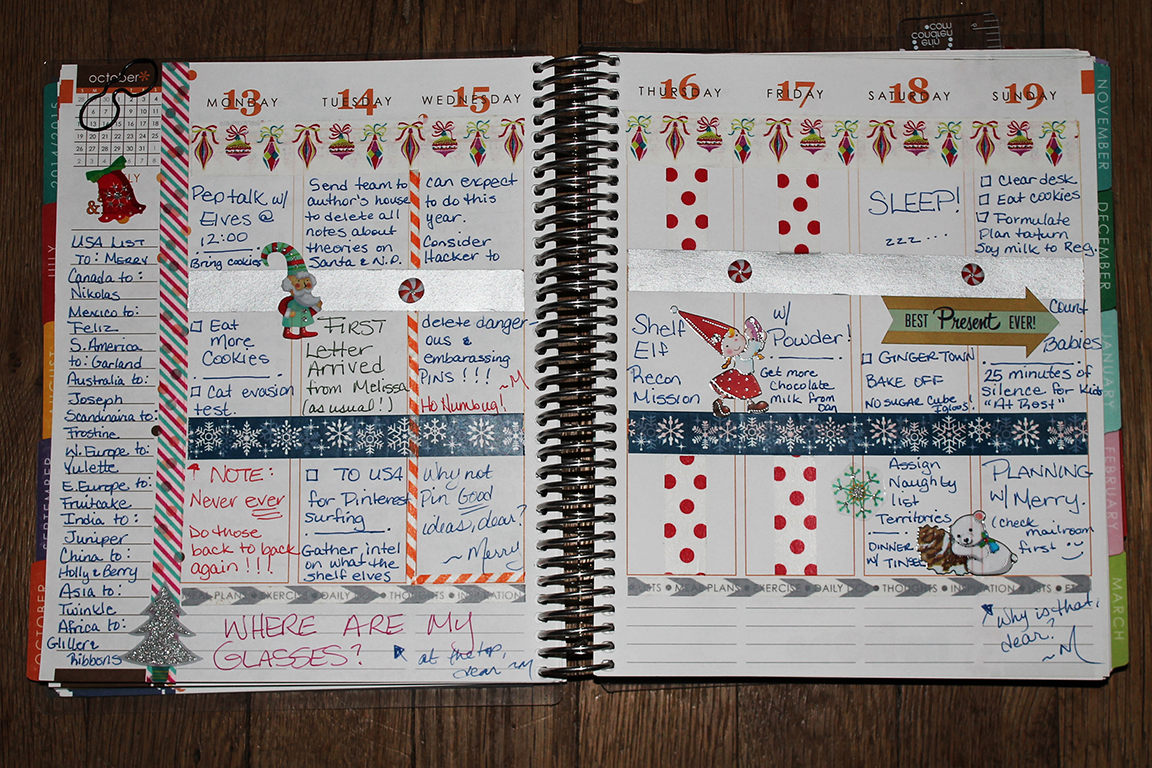 october*
&
USA LIST
TO: MERRY
Canada to:
Nikolas
Mexico to:
Feliz
S. America
to: Garland
Australia to:
Joseph
Scandinaina to:
Frostine
W. Europe to:
Yulette
E. Europe to:
Fruitcake
India to:
Juniper
China to:
Holly & Berry
Asia to:
Twinkle
Africa to:
Glitter &
Ribbons
MONDAY 13
Pep talk w/
Elves @
12:00
Bring cookies
Eat
more
Cookies
Cat evasion
test.
NOTE:
Never ever
Do those
back to back
again!!!
TUESDAY 14
Send team to
author's house
to delete all
notes about
theories on
Santa & N.P.
FIRST
Letter
Arrived
from Melissa
(as usual!)
TO USA
for Pinterest
Surfing
Gather intel
on what the
shelf elves
WEDNESDAY 15
can expect
to do this
year.
Consider
Hacker to
delete danger-
ous &
embarassing
PINS!!!
~M
Ho Humbug!
Why not
Pin Good
ideas, dear?
~Merry
MEAL PLANS EXERCISE DAILY DOS THOUGHTS INSPIRATION
WHERE ARE MY
GLASSES?
at the top,
dear ~M
erin
condren
.com
THURSDAY 16
Shelf
Elf
Recon
Mission
FRIDAY 17
w/
Powder!
Get more
chocolate
milk from
Dan
SATURDAY 18
SLEEP!
zzz...
BEST Present EVER!
GINGERTOWN
BAKE OFF
NO SUGAR Cube
Igloos!
Assign
Naughty
list
Territories
DINNER
W/ TINSEL
SUNDAY 19
Clear desk
Eat cookies
Formulate
Plan to turn
Soy milk to Reg.
Count
Babies
25 minutes of
silence for Kids
"At Rest"
PLANNING
w/ Merry.
(check
mailroom
first
LISTS MEAL PLANS EXERCISE DAILY DOS THOUGHTS INSPIRATION LISTS
Why is that,
dear?
~M
2014/2015
JULY
AUGUST
SEPTEMBER
OCTOBER
NOVEMBER
DECEMBER
JANUARY
FEBRUARY
MARCH